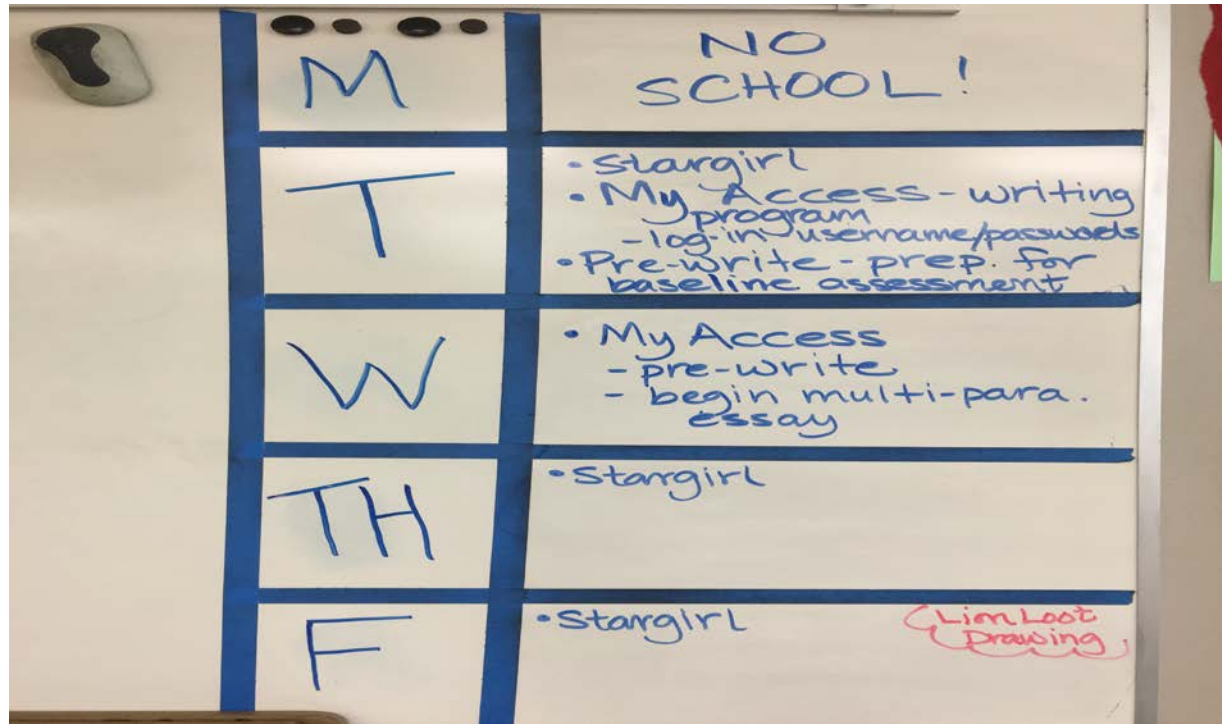 M
NO
SCHOOL!
T
• Stargirl
• My Access - writing
program
- log-in username/passwords
• Pre-write - prep. for
baseline assessment
W
• My Access
- pre-write
- begin multi-para.
essay
TH
• Stargirl
F
• Stargirl
Lion Loot
Drawing